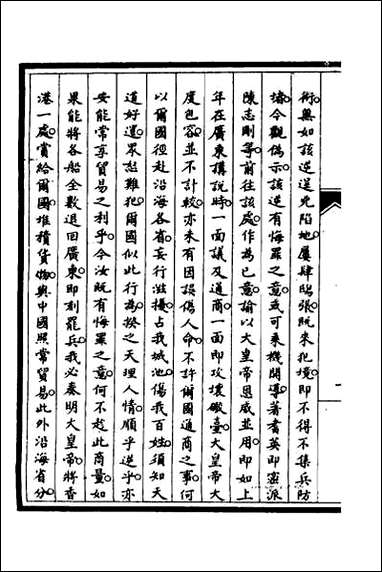 術無如該逆送死陷地屢肆鴟張既來犯境即不得不集兵防
堵今觀偽示該逆有悔罪之意或可乘機開導著耆英即密派
陳志剛等前往該處作為己意諭以大皇帝恩威並用即如上
年在廣東搆說時一面議及通商一面即攻壞礮臺大皇帝大
度包容並不計較亦未有因誤傷人命不許爾國通商之事何
以爾國徑赴沿海各省妄行滋擾占我城池傷我百姓須知天
道好還眾怒難犯爾國似此行為揆之天理人情順乎逆乎亦
安能常享貿易之利乎今汝既有悔罪之意何不趁此商量如
果能將各船全數退回廣東即刻罷兵我必奏明大皇帝將香
港一處賞給爾國堆積貨物與中國照常貿易此外沿海省分